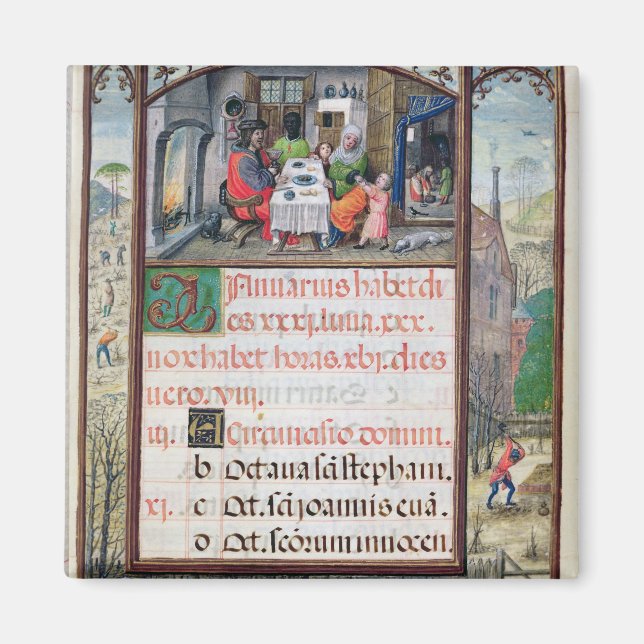 Januarius habet di
es xxxj. luna. xxx.
nox habet horas. xbj. dies
uero. viij.
iij A Circuncisio domini.
b Octaua scī stephani.
xj. c Oct. scī joannis euā.
d Oct. scōrum innocen.